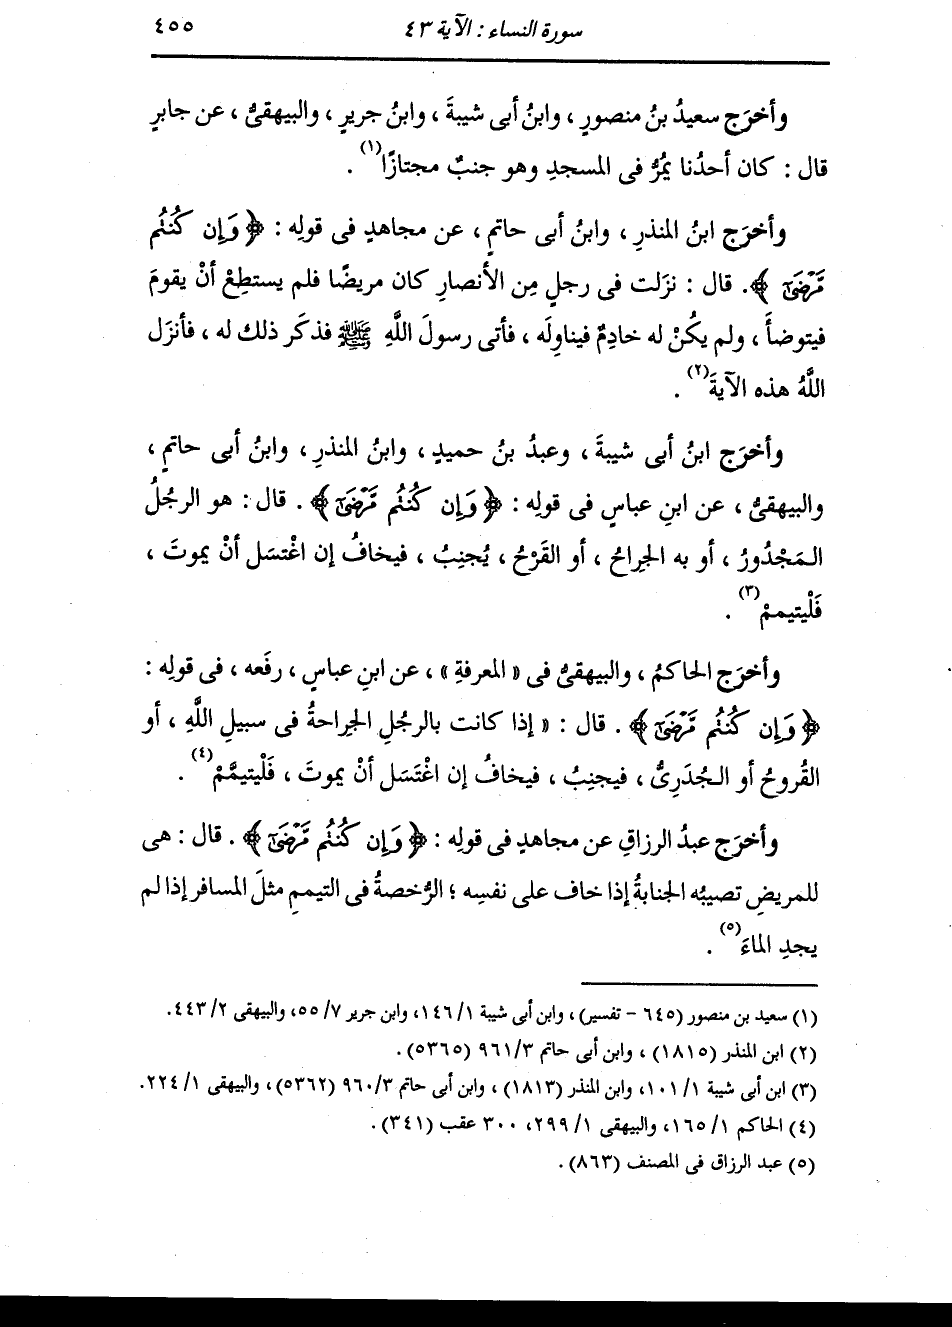 سورة النساء : الآية ٤٣
٤٥٥
وأخرَج سعيدُ بنُ منصورٍ ، وابنُ أبى شيبةَ ، وابنُ جريرٍ ، والبيهقىُّ ، عن جابرٍ
قال : كان أحدُنا يمُرُّ فى المسجدِ وهو جنبٌ مجتازًا(١) .
وأخرَج ابنُ المنذرِ ، وابنُ أبى حاتمٍ ، عن مجاهدٍ فى قولِه : ﴿وَإِن كُنتُم
مَّرْضَىٰٓ﴾. قال : نزَلت فى رجلٍ مِن الأنصارِ كان مريضًا فلم يستطِعْ أنْ يقومَ
فيتوضأَ ، ولم يكُنْ له خادِمٌ فيناوِلَه ، فأتى رسولَ اللَّهِ ﷺ فذكَر ذلك له ، فأنزَل
اللَّهُ هذه الآيةَ(٢) .
وأخرَج ابنُ أبى شيبةَ ، وعبدُ بنُ حميدٍ ، وابنُ المنذرِ ، وابنُ أبى حاتمٍ ،
والبيهقىُّ ، عن ابنِ عباسٍ فى قولِه : ﴿وَإِن كُنتُم مَّرْضَىٰٓ﴾ . قال : هو الرجُلُ
المَجْدُورُ ، أو به الجِراحُ ، أو القَرْحُ ، يُجنِبُ ، فيخافُ إن اغْتَسَل أنْ يموتَ ،
فَلْيتيممْ(٣) .
وأخرَج الحاكمُ ، والبيهقىُّ فى « المعرفةِ » ، عن ابنِ عباسٍ ، رفَعه ، فى قولِه :
﴿وَإِن كُنتُم مَّرْضَىٰٓ﴾ . قال : « إذا كانت بالرجُلِ الجِراحةُ فى سبيلِ اللَّهِ ، أو
القُروحُ أو الجُدَرِىُّ ، فيجنِبُ ، فيخافُ إن اغْتَسَل أنْ يموتَ ، فَلْيتيمَّمْ(٤) .
وأخرَج عبدُ الرزاقِ عن مجاهدٍ فى قولِه : ﴿وَإِن كُنتُم مَّرْضَىٰٓ﴾ . قال : هى
للمريضِ تصيبُه الجنابةُ إذا خاف على نفسِه ؛ الرُّخصةُ فى التيممِ مثلَ المسافرِ إذا لم
يجدِ الماءَ(٥) .
(١) سعيد بن منصور (٦٤٥ - تفسير) ، وابن أبى شيبة ١/ ١٤٦، وابن جرير ٧/ ٥٥، والبيهقى ٢/ ٤٤٣.
(٢) ابن المنذر (١٨١٥) ، وابن أبى حاتم ٣/ ٩٦١ (٥٣٦٥).
(٣) ابن أبى شيبة ١/ ١٠١، وابن المنذر (١٨١٣) ، وابن أبى حاتم ٣/ ٩٦٠ (٥٣٦٢)، والبيهقى ١/ ٢٢٤.
(٤) الحاكم ١/ ١٦٥، والبيهقى ١/ ٢٩٩، ٣٠٠ عقب (٣٤١).
(٥) عبد الرزاق فى المصنف (٨٦٣) .